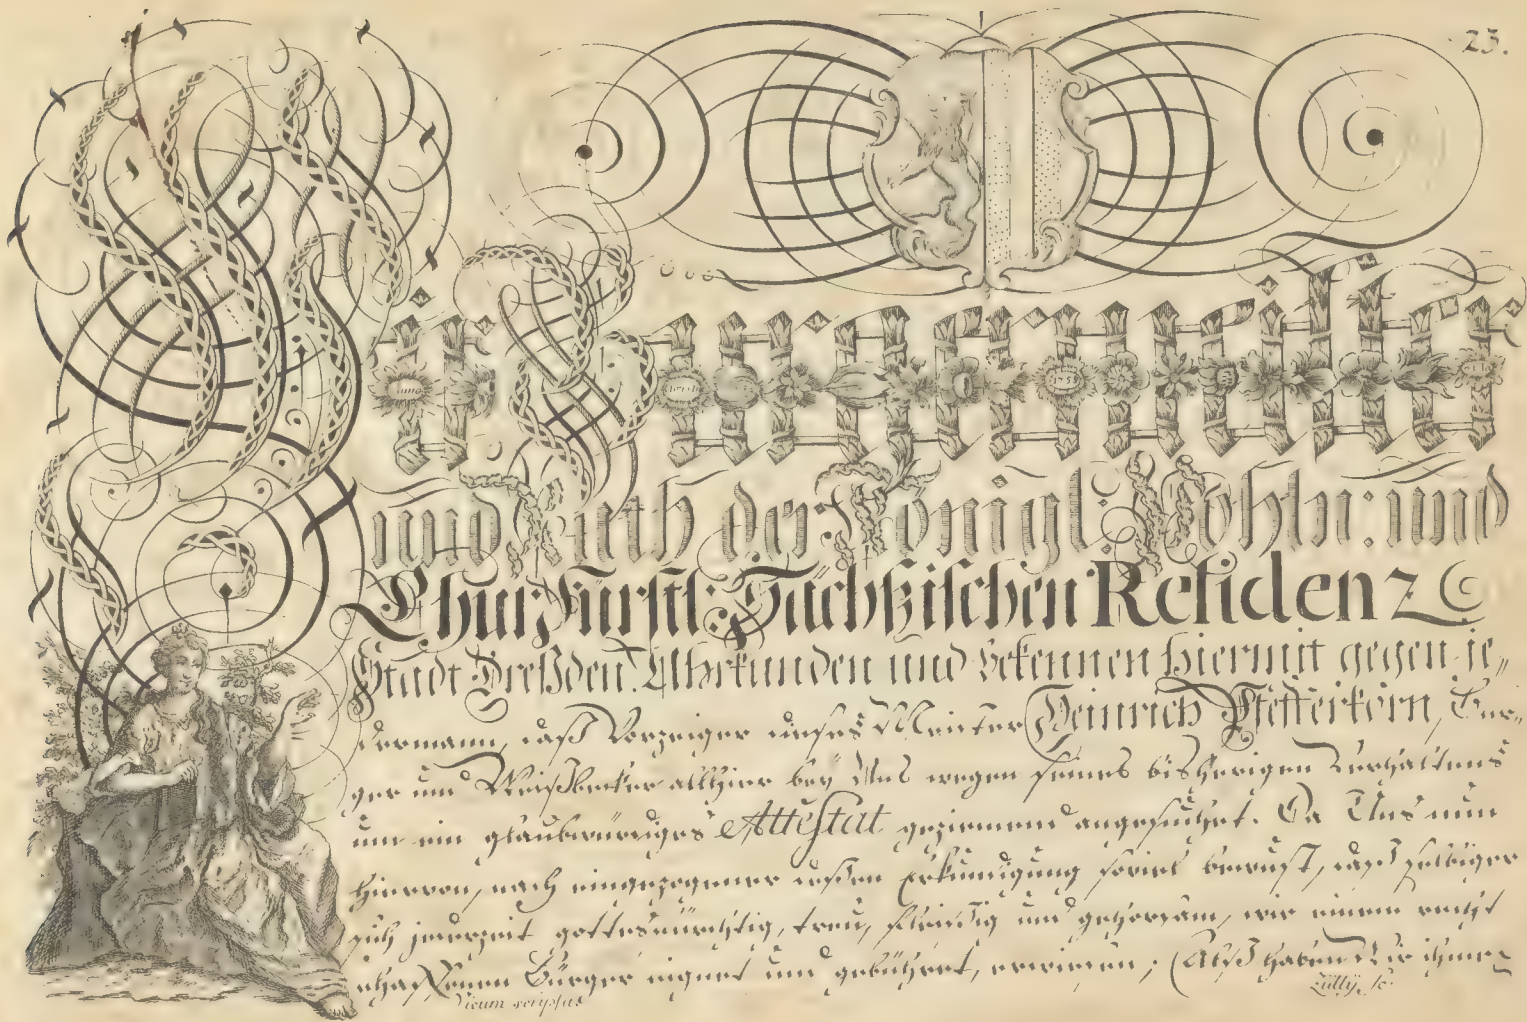 23.
Wir Burgermeister
Anno Christi 1758
und Rath der Königl: Pohln: und
ChurFürstl: Sächßischen Residenz
Stadt Dreßden. Uhrkunden und bekennen hiermit gegen je„
dermann, daß Vorzeiger dieses Meister Heinrich Pfefferkorn, Bur„
ger und Weißbecker allhier bey Uns wegen seines bisherigen Verhaltens
um ein glaubwürdiges Attestat geziemend angesuchet. Da Uns nun
hiervon, nach eingezogener Erkundigung soviel bewust, daß selbiger
sich jederzeit gottesfürchtig, treu, fleissig und gehorsam, wie einem recht
schaffenen Bürger eignet und gebühret, erwiesen; Alß haben Wir ihme
scripsit
sc.